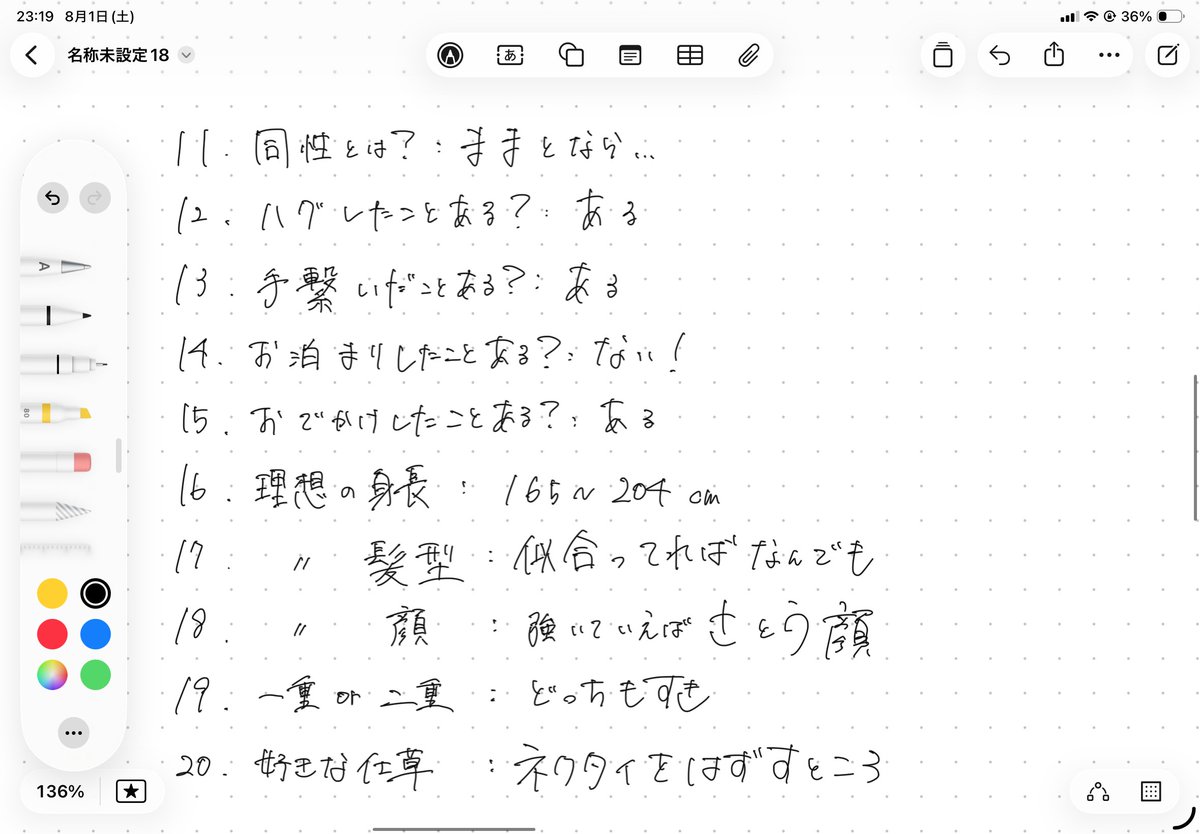 23:19 8月1日(土)
36%
名称未設定18
あ
A
80
11. 同性とは?: ままとなら…
12. ハグしたことある?: ある
13. 手繋いだことある?: ある
14. お泊まりしたことある?: ない!
15. おでかけしたことある?: ある
16. 理想の身長: 165~204cm
17. 〃 髪型: 似合ってればなんでも
18. 〃 顔: 強いていえばさとう顔
19. 一重or二重: どっちもすき
20. 好きな仕草: ネクタイをはずすところ
136%